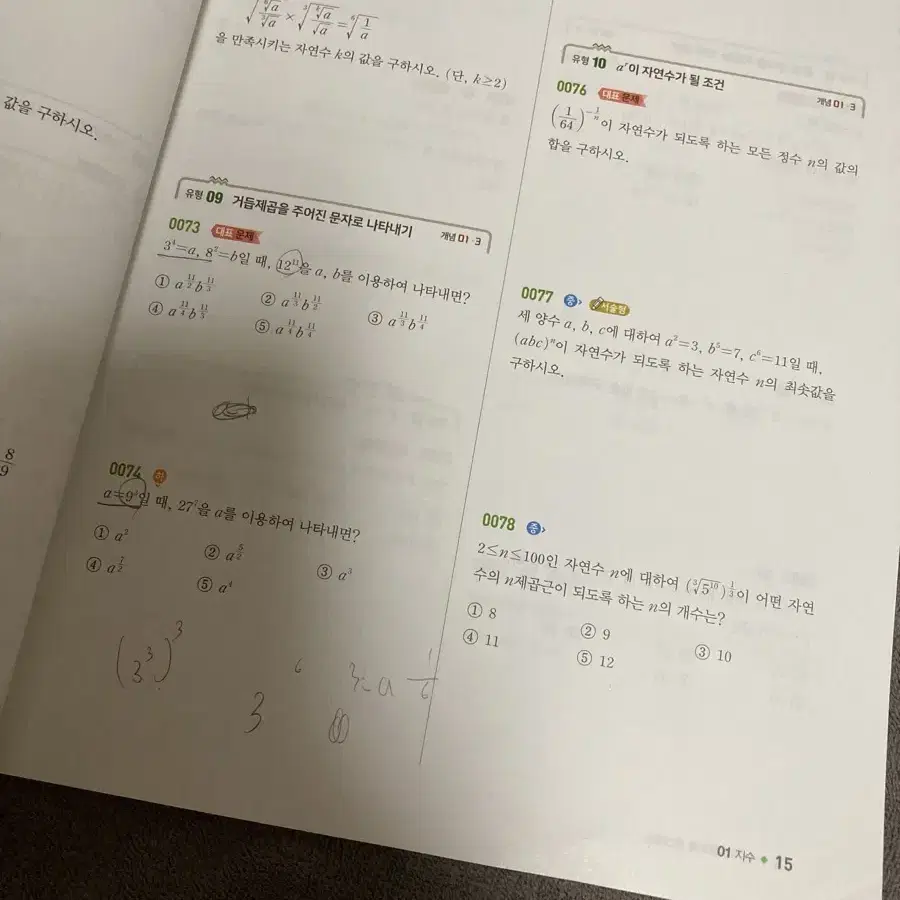 값을 구하시오.
8/9
√(∜a/∛a) × ∛(ᵏ√a/√a) = ⁶√(1/a)
을 만족시키는 자연수 k의 값을 구하시오. (단, k≥2)
유형 09 거듭제곱을 주어진 문자로 나타내기
개념 01-3
0073 대표 문제
3⁴=a, 8⁵=b일 때, 12¹¹을 a, b를 이용하여 나타내면?
① a^(11/2)b^(11/3)
② a^(11/3)b^(11/2)
③ a^(11/3)b^(11/4)
④ a^(11/4)b^(11/3)
⑤ a^(11/4)b^(11/4)
0074 하
일 때, 27⁷을 a를 이용하여 나타내면?
① a²
② a^(5/2)
③ a³
④ a^(7/2)
⑤ a⁴
(3³)³
3⁶
3=a^(1/6)
유형 10 aʳ이 자연수가 될 조건
개념 01-3
0076 대표 문제
(1/64)^(-1/n)이 자연수가 되도록 하는 모든 정수 n의 값의
합을 구하시오.
0077 중 서술형
세 양수 a, b, c에 대하여 a²=3, b⁵=7, c⁶=11일 때,
(abc)ⁿ이 자연수가 되도록 하는 자연수 n의 최솟값을
구하시오.
0078 중
2≤n≤100인 자연수 n에 대하여 (∛5¹⁰)^(1/3)이 어떤 자연
수의 n제곱근이 되도록 하는 n의 개수는?
① 8
② 9
③ 10
④ 11
⑤ 12
01 지수 15